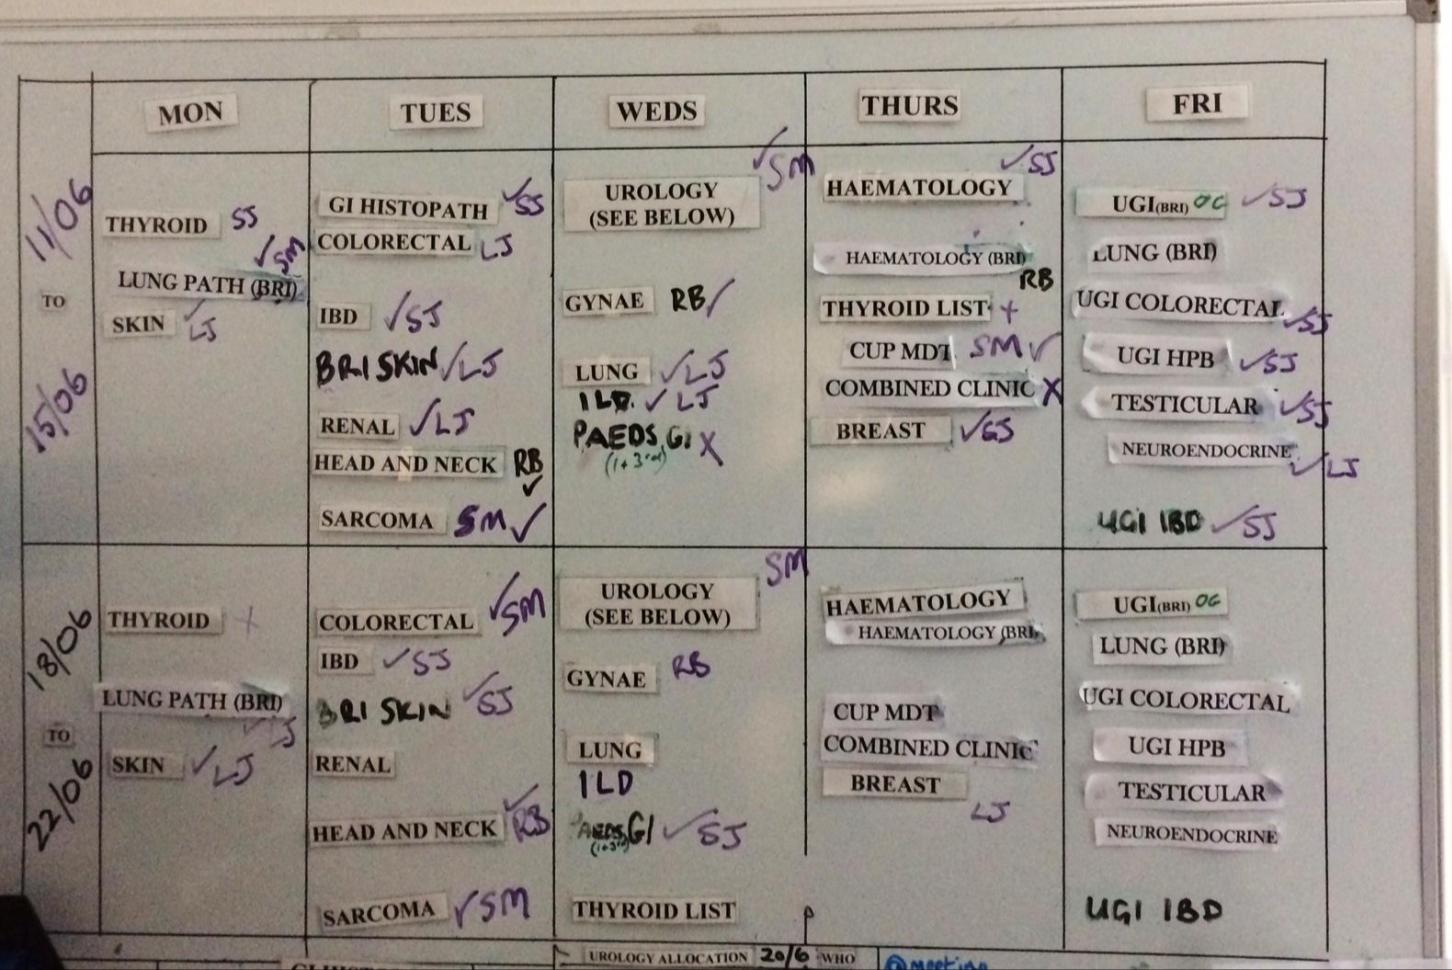 MON TUES WEDS THURS FRI
11/06
TO
15/06
THYROID SS
✓SM
LUNG PATH (BRI)
SKIN ✓LJ
GI HISTOPATH ✓SS
COLORECTAL LJ
IBD ✓SJ
BRI SKIN ✓LJ
RENAL ✓LJ
HEAD AND NECK RB
✓
SARCOMA SM✓
✓SM
UROLOGY
(SEE BELOW)
GYNAE RB/
LUNG ✓LJ
ILD. ✓LJ
PAEDS GI X
(1+3rd)
✓SJ
HAEMATOLOGY
HAEMATOLOGY (BRI)
RB
THYROID LIST +
CUP MDT SM✓
COMBINED CLINIC X
BREAST ✓GS
UGI(BRI) OG ✓SJ
LUNG (BRI)
UGI COLORECTAL ✓SJ
UGI HPB ✓SJ
TESTICULAR ✓SJ
NEUROENDOCRINE
✓LJ
UGI IBD ✓SJ
18/06
TO
22/06
THYROID +
LUNG PATH (BRI)
SKIN ✓LJ
COLORECTAL ✓SM
IBD ✓SJ
BRI SKIN ✓SJ
RENAL
HEAD AND NECK ✓RB
SARCOMA ✓SM
SM
UROLOGY
(SEE BELOW)
GYNAE RB
LUNG
ILD
PAEDS GI ✓SJ
(1+3rd)
THYROID LIST
HAEMATOLOGY
HAEMATOLOGY (BRI)
CUP MDT
COMBINED CLINIC
BREAST
LJ
UGI(BRI) OG
LUNG (BRI)
UGI COLORECTAL
UGI HPB
TESTICULAR
NEUROENDOCRINE
UGI IBD
UROLOGY ALLOCATION 20/6 WHO @meeting